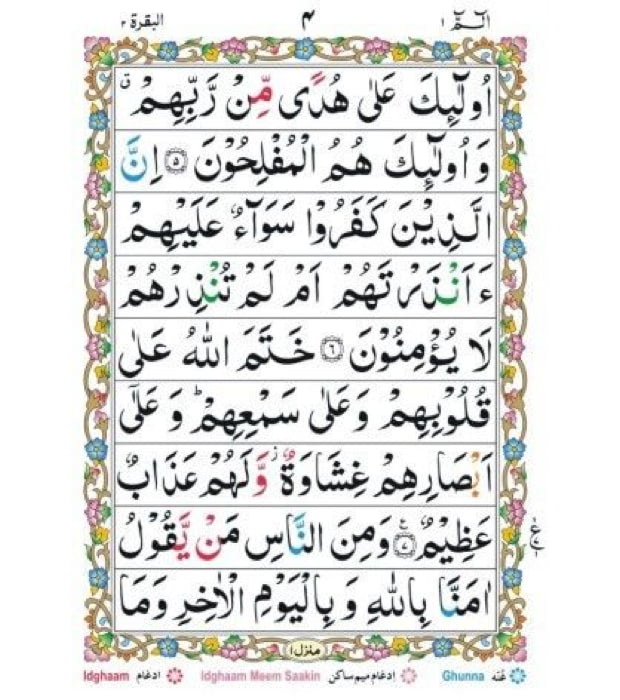 الٓـمّٓ ١ ٤ البقرة ٢
اُولٰٓئِكَ عَلٰى هُدًى مِّنْ رَّبِّهِمْ ۙق
وَ اُولٰٓئِكَ هُمُ الْمُفْلِحُوْنَ ۝٥ اِنَّ
الَّذِيْنَ كَفَرُوْا سَوَآءٌ عَلَيْهِمْ
ءَاَنْذَرْتَهُمْ اَمْ لَمْ تُنْذِرْهُمْ
لَا يُؤْمِنُوْنَ ۝٦ خَتَمَ اللّٰهُ عَلٰى
قُلُوْبِهِمْ وَعَلٰى سَمْعِهِمْ ؕ وَ عَلٰٓى
اَبْصَارِهِمْ غِشَاوَةٌ ز وَّلَهُمْ عَذَابٌ
عَظِيْمٌ ۝٧ ع وَمِنَ النَّاسِ مَنْ يَّقُوْلُ
اٰمَنَّا بِاللّٰهِ وَ بِالْيَوْمِ الْاٰخِرِ وَمَا
منزل ١
Idghaam ادغام Idghaam Meem Saakin إدغام ميم ساكن Ghunna غُنّه